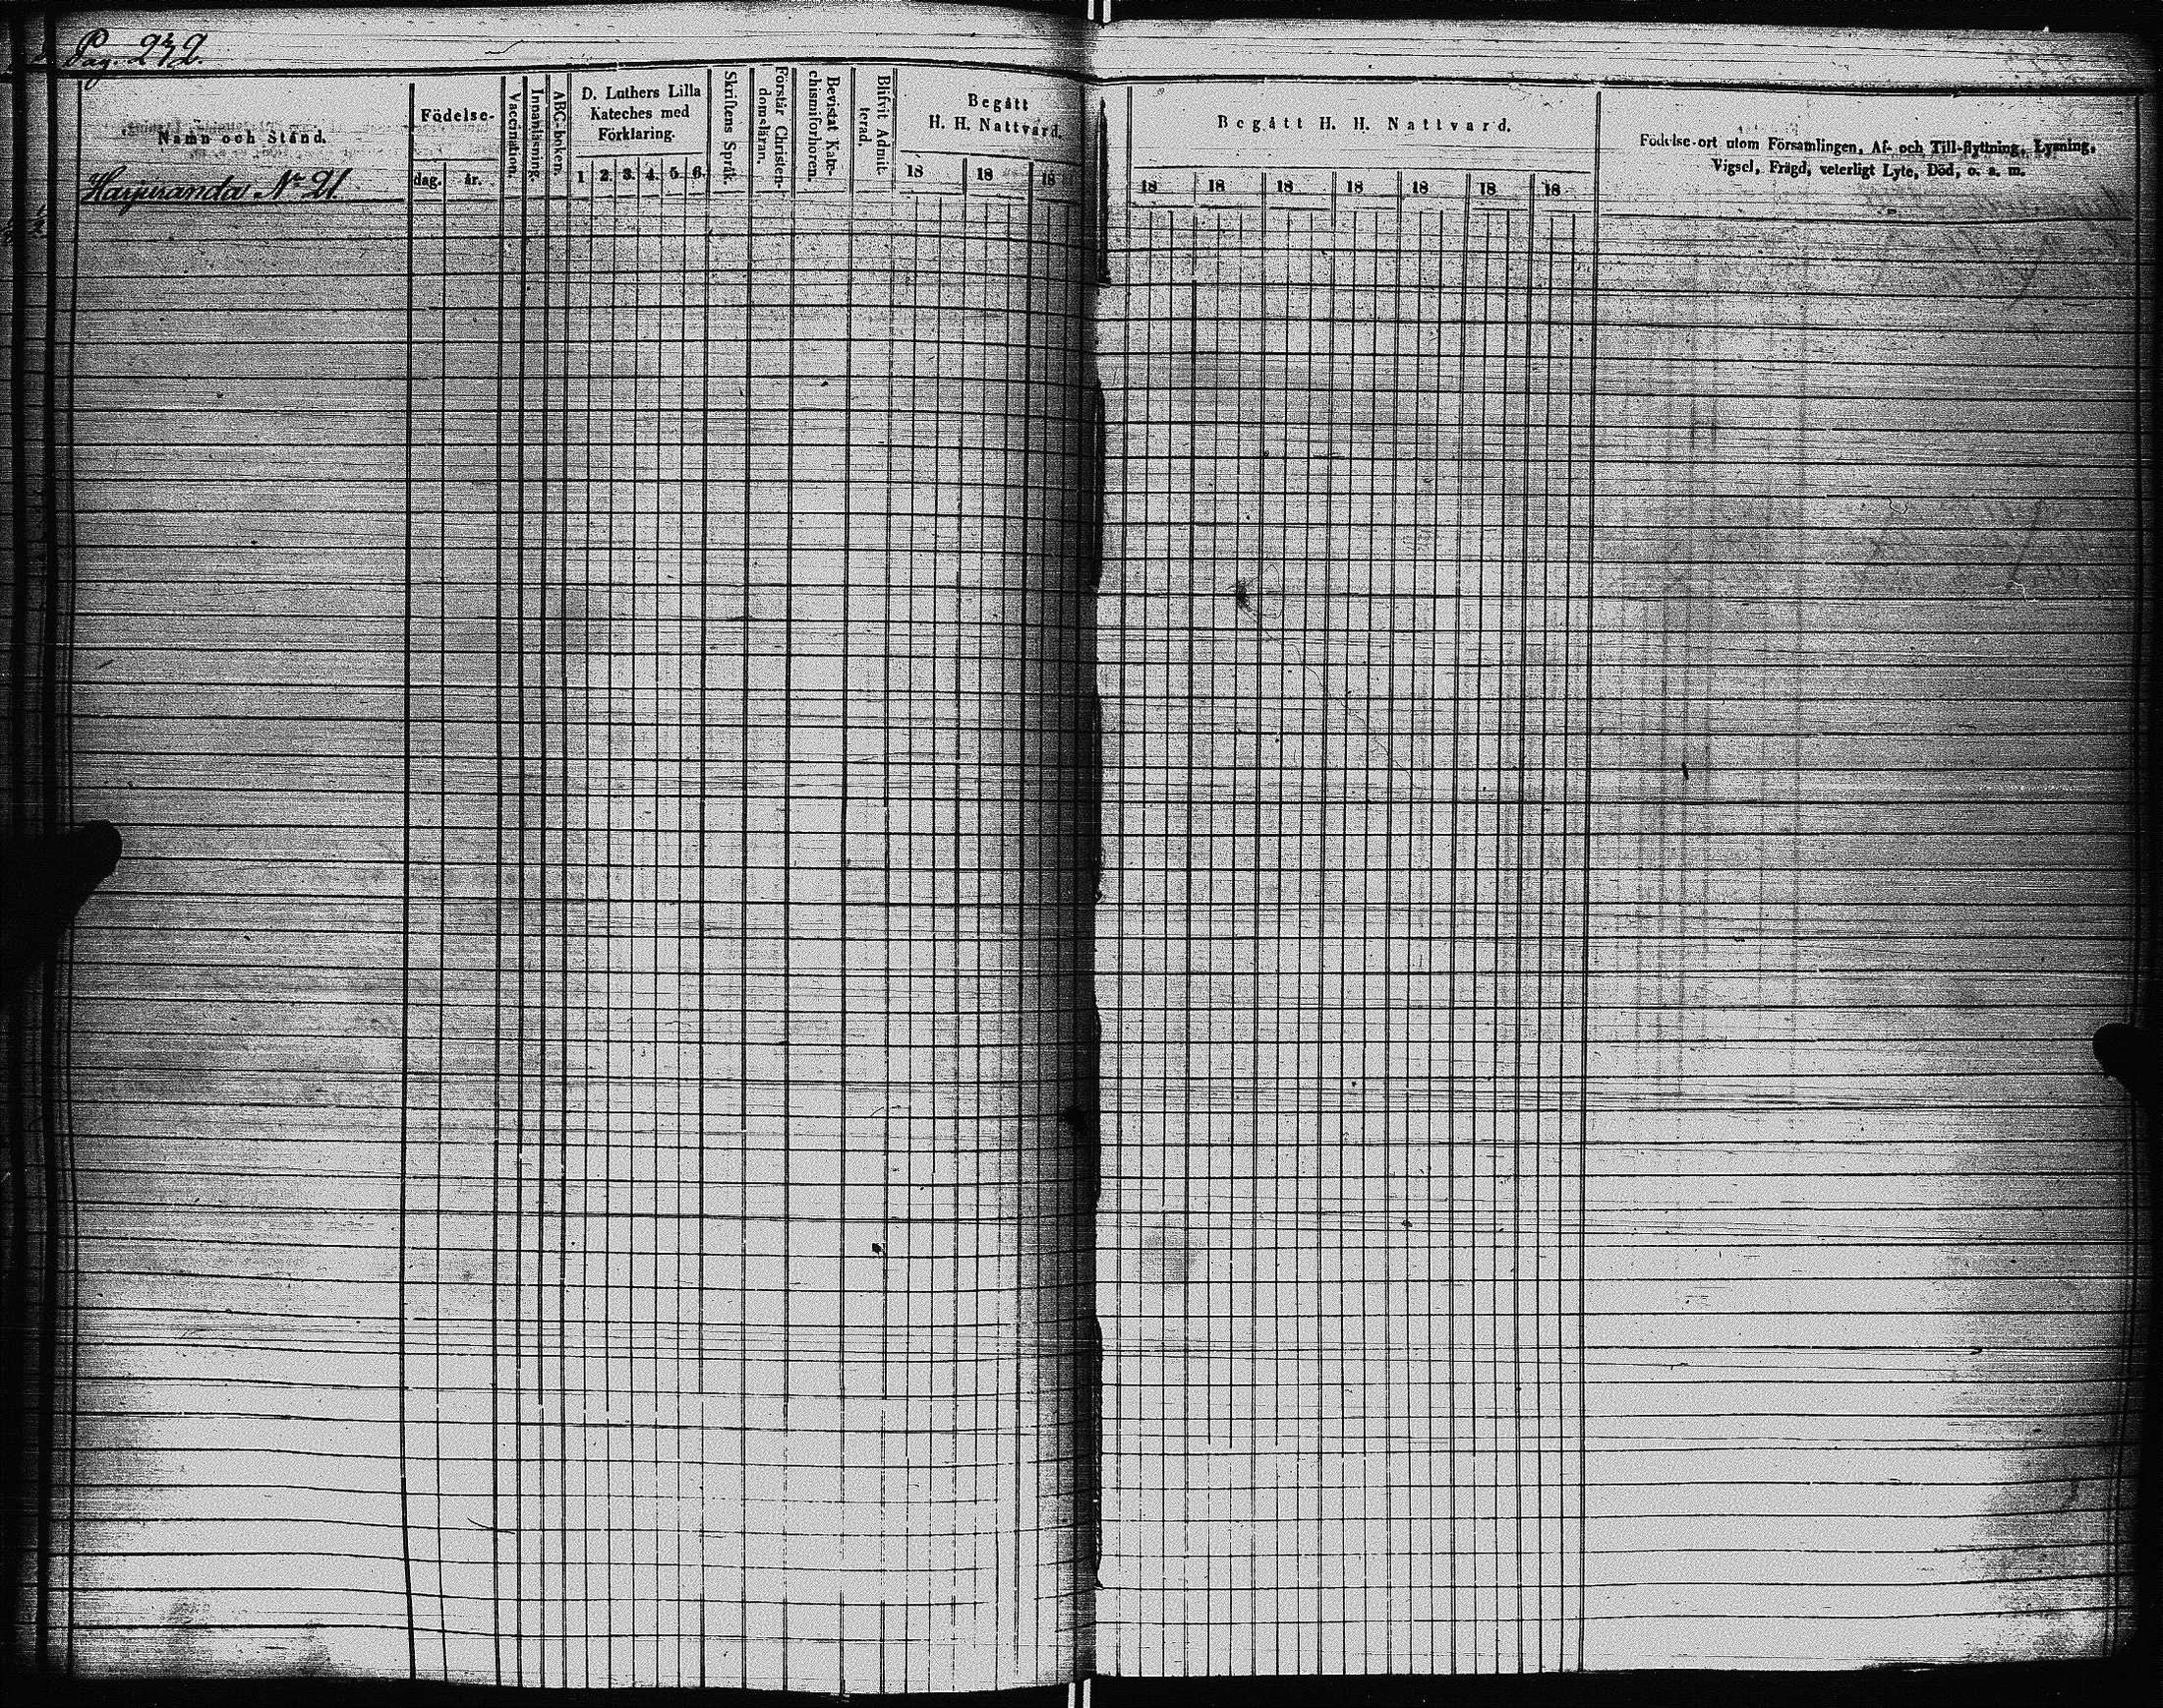 Pag. 232.
Namn och Stånd.
Födelse-
dag. år.
Vaccination.
Innanläsning.
ABC-boken.
D. Luthers Lilla
Kateches med
Förklaring.
1 2. 3. 4. 5. 6.
Skriftens Språk.
Förstår Christen-
domsläran.
Bevistat Kate-
chismiförhören.
Blifvit Admit-
terad.
Begått
H. H. Nattvard.
18 18 18
Begått H. H. Nattvard.
18 18 18 18 18 18 18
Födelse-ort utom Församlingen, Af- och Till-flyttning, Lysning,
Vigsel, Frägd, veterligt Lyte, Död, o. s. m.
Harjuranda No 21.